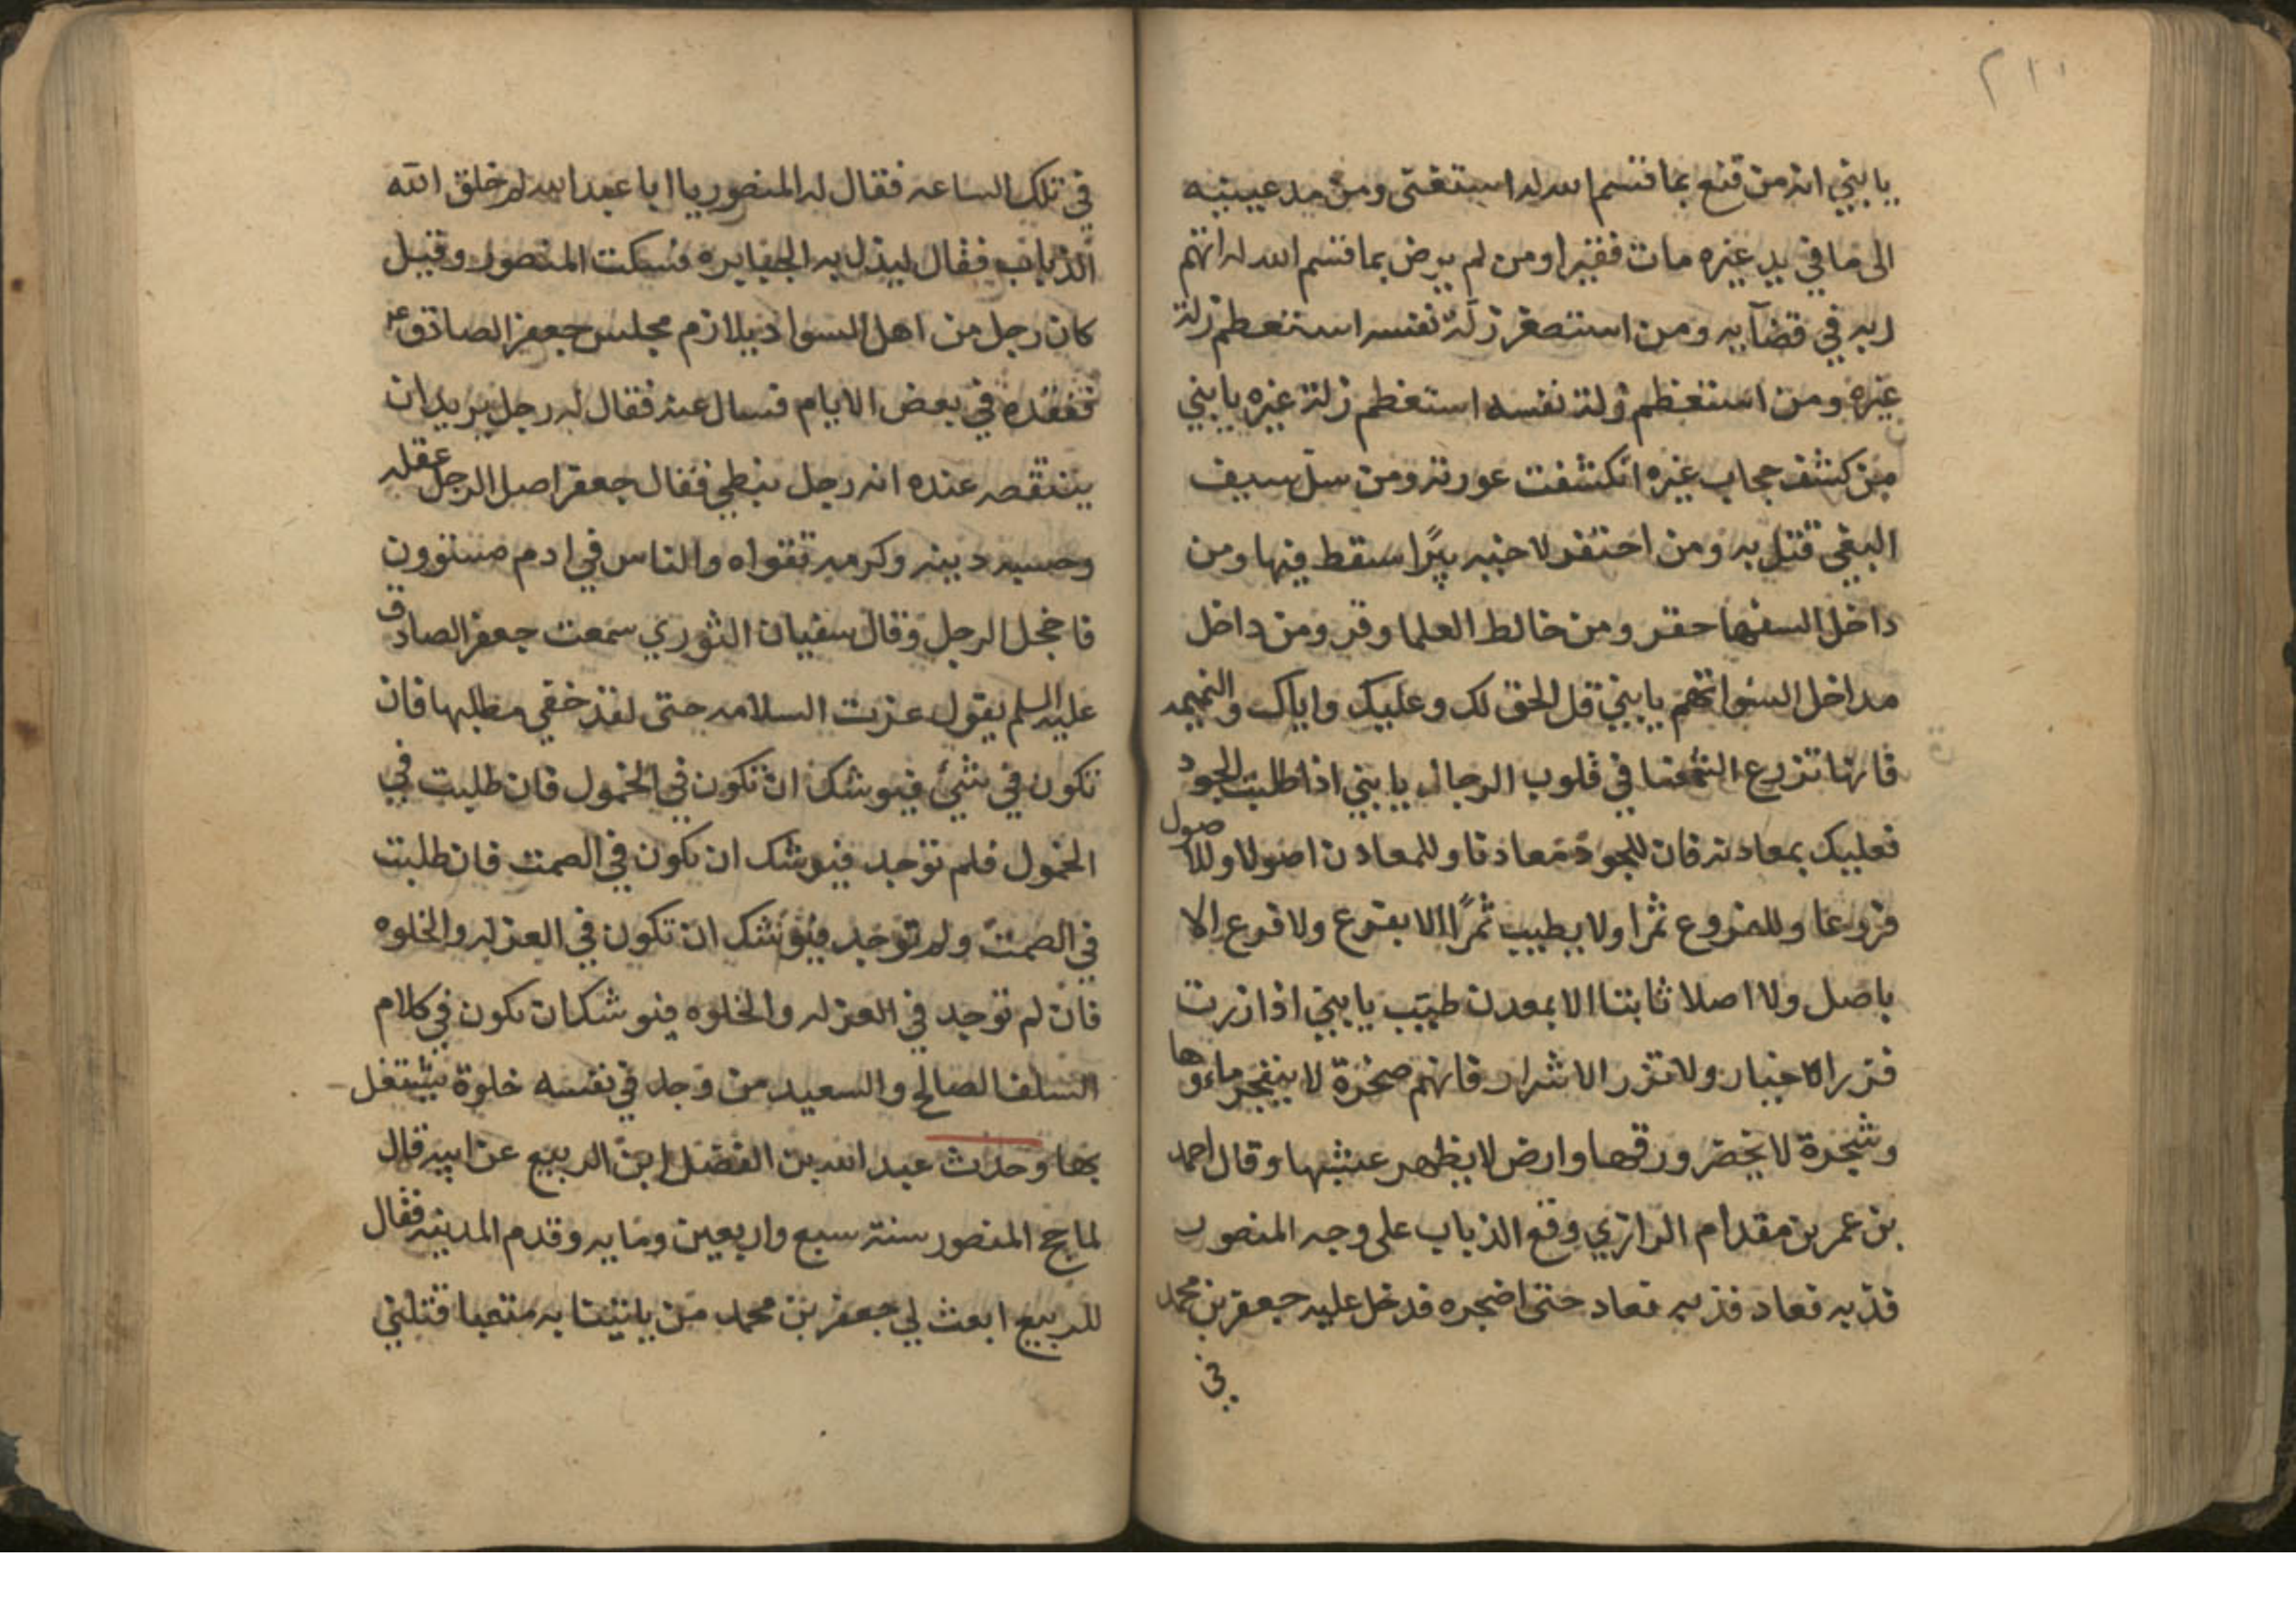 ٢١١
يا بني انه من قنع بما قسم الله له استغنى ومن مد عينيه
الى ما في يد غيره مات فقيرا ومن لم يرض بما قسم الله له اتهم
ربه في قضآيه ومن استصغر زلة نفسه استعظم زلة
غيره ومن استعظم زلة نفسه استعظم زلة غيره يا بني
من كشف حجاب غيره انكشفت عورته ومن سل سيف
البغي قتل به ومن احتفر لاخيه بيرا سقط فيها ومن
داخل السفها حقر ومن خالط العلما وقر ومن داخل
مداخل السوا اتهم يا بني قل الحق لك وعليك واياك والنميمه
فانها تزرع الشحنا في قلوب الرجال يا بني اذا طلبت الجود
فعليك بمعادنه فان للجود معادنا وللمعادن اصولا وللاصول
فروعا وللفروع ثمرا ولا يطيب ثمرا الا بفرع ولا فرع الا
باصل ولا اصلا ثابتا الا بمعدن طيب يا بني اذا زرت
فزر الاخيار ولا تزر الاشرار فانهم صخرة لا ينفجر ماءوها
وشجرة لا يخضر ورقها وارض لا يظهر عشبها وقال احمد
بن عمر بن مقدام الرازي وقع الذباب على وجه المنصور
فذبه فعاد فذبه فعاد حتى اضجره فدخل عليه جعفر بن محمد
في
في تلك الساعه فقال له المنصور يا ابا عبد الله لم خلق الله
الذباب فقال ليذل به الجبابره فسكت المنصور وقيل
كان رجل من اهل السواد يلازم مجلس جعفر الصادق
ففقده في بعض الايام فسال عنه فقال له رجل يريد ان
ينتقصه عنده انه رجل نبطي فقال جعفر اصل الرجل عقله
وحسبه دينه وكرمه تقواه والناس في ادم مستوون
فاخجل الرجل وقال سفيان الثوري سمعت جعفر الصادق
عليه السلم يقول عزت السلامه حتى لقد خفي مطلبها فان
تكون في شئ فيوشك ان تكون في الخمول فان طلبت في
الخمول فلم توجد فيوشك ان تكون في الصمت فان طلبت
في الصمت ولم توجد فيوشك ان تكون في العزله والخلوه
فان لم توجد في العزله والخلوه فيوشك ان تكون في كلام
السلف الصالح والسعيد من وجد في نفسه خلوة يشتغل
بها وحدث عبد الله بن الفضل ابن الربيع عن ابيه قال
لما حج المنصور سنة سبع واربعين ومايه وقدم المدينه فقال
للربيع ابعث لي جعفر بن محمد من ياتينا به متعبا قتلني